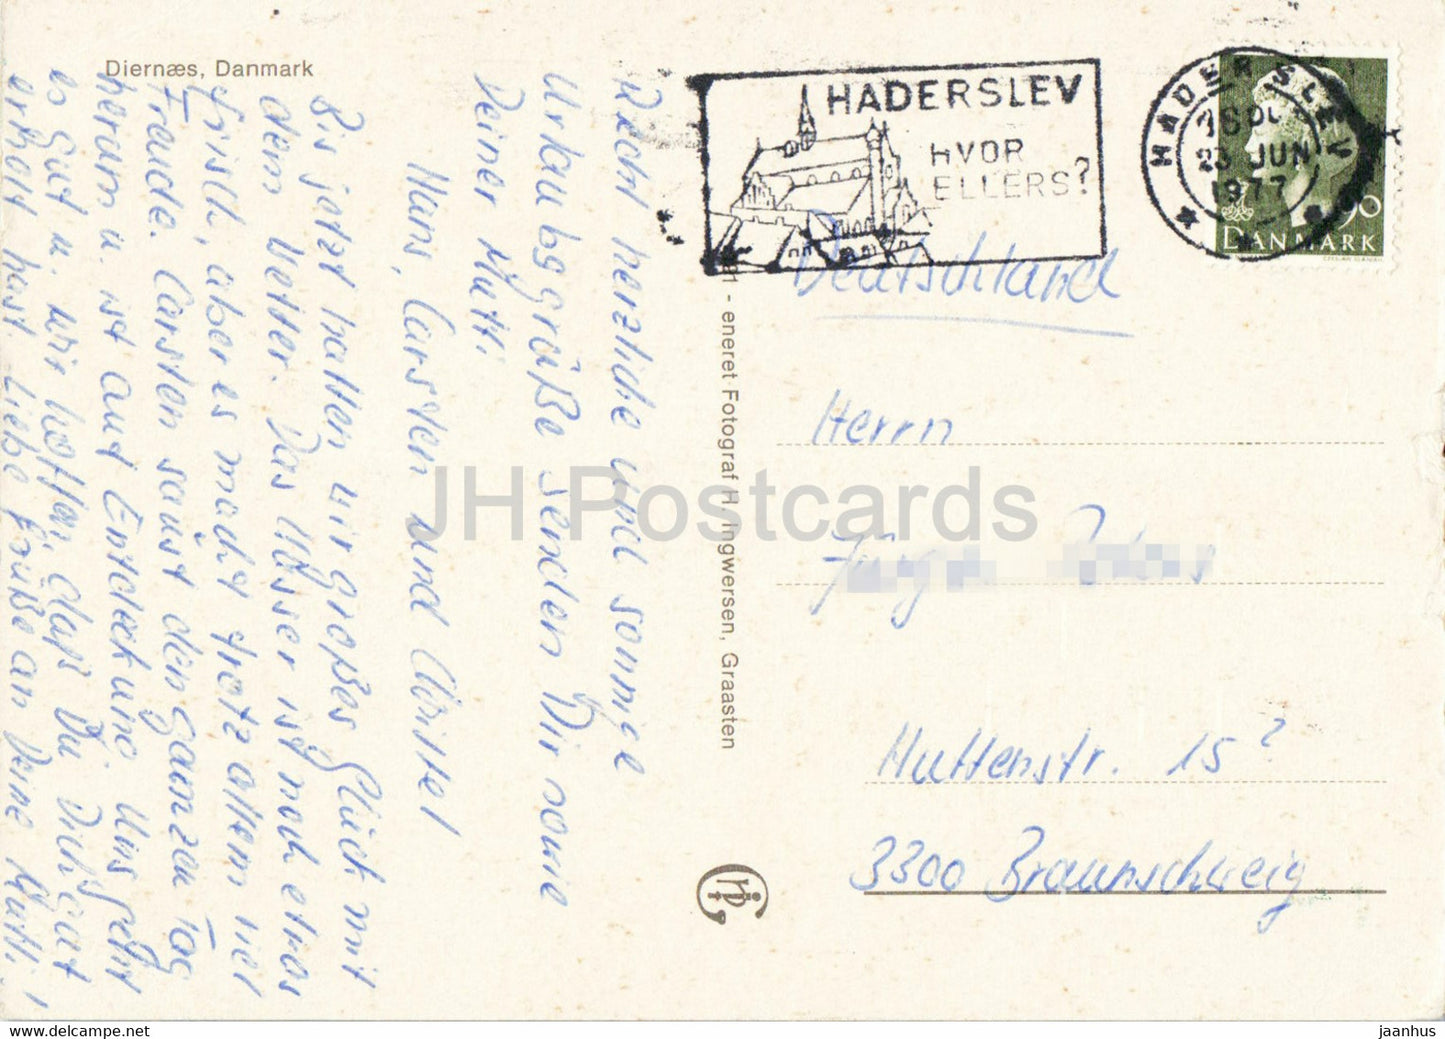 Diernæs, Danmark
HADERSLEV
HVOR
ELLERS?
HADERSLEV
23 JUN
1977
90
DANMARK
Deutschland
Recht herzliche und sonnige
Urlaubsgrüße senden Dir sowie
Deiner Mutti
Hans, Carsten und Christel
Bis jetzt hatten wir großes Glück mit
dem Wetter. Das Wasser ist noch etwas
frisch, aber es macht trotz allem viel
Freude. Carsten saust den ganzen Tag
herum u. ist auf Entdeckung. Uns geht
es gut u. wir hoffen, daß Du Dich gut
erholt hast. Liebe Grüße an Deine Mutti!
eneret Fotograf H. Ingwersen, Graasten
Herrn
Huttenstr. 15?
3300 Braunschweig
JH Postcards
www.delcampe.net
jaanhus